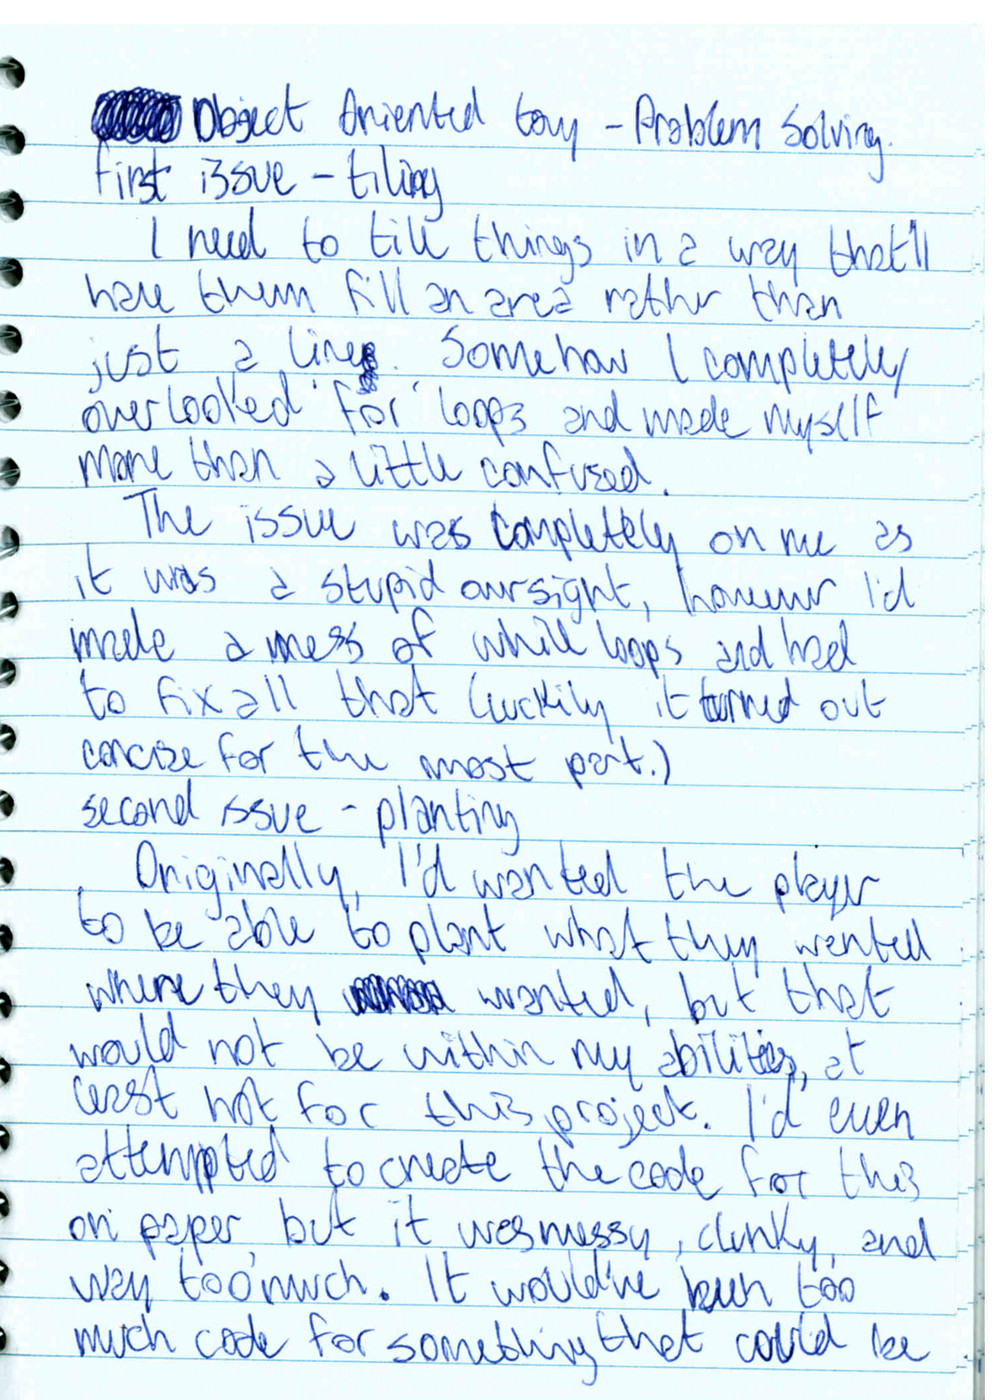 Object Oriented toy - Problem Solving.
First issue - tiling
I need to tile things in a way that'll
have them fill an area rather than
just a line. Somehow I completely
overlooked 'for' loops and made myself
more than a little confused.
The issue was completely on me as
it was a stupid oversight, however I'd
made a mess of while loops and had
to fix all that (luckily it turned out
concise for the most part.)
second issue - planting
Originally, I'd wanted the player
to be able to plant what they wanted
where they wanted, but that
would not be within my abilities, at
least not for this project. I'd even
attempted to create the code for this
on paper, but it was messy, clunky, and
way too much. It would've been too
much code for something that could be